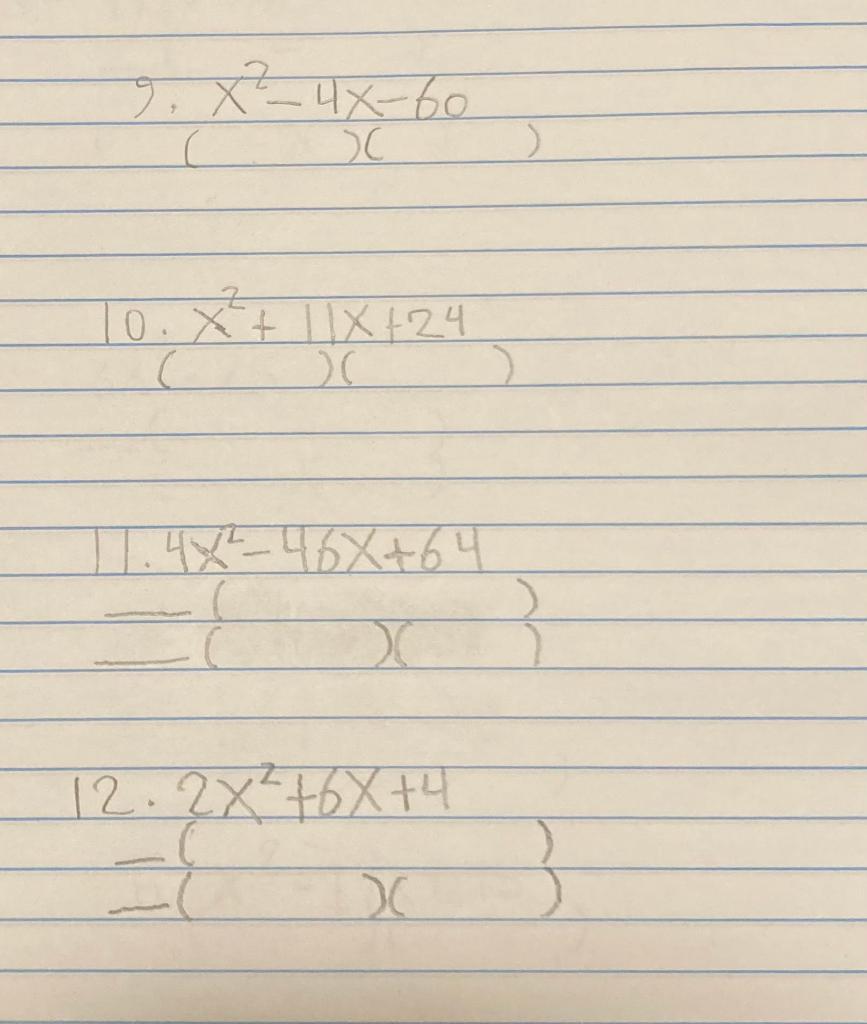 9. x²-4x-60
(        )(        )
10. x²+11x+24
(        )(        )
11. 4x²-46x+64
___(            )
___(        )(        )
12. 2x²+6x+4
_(            )
_(        )(        )